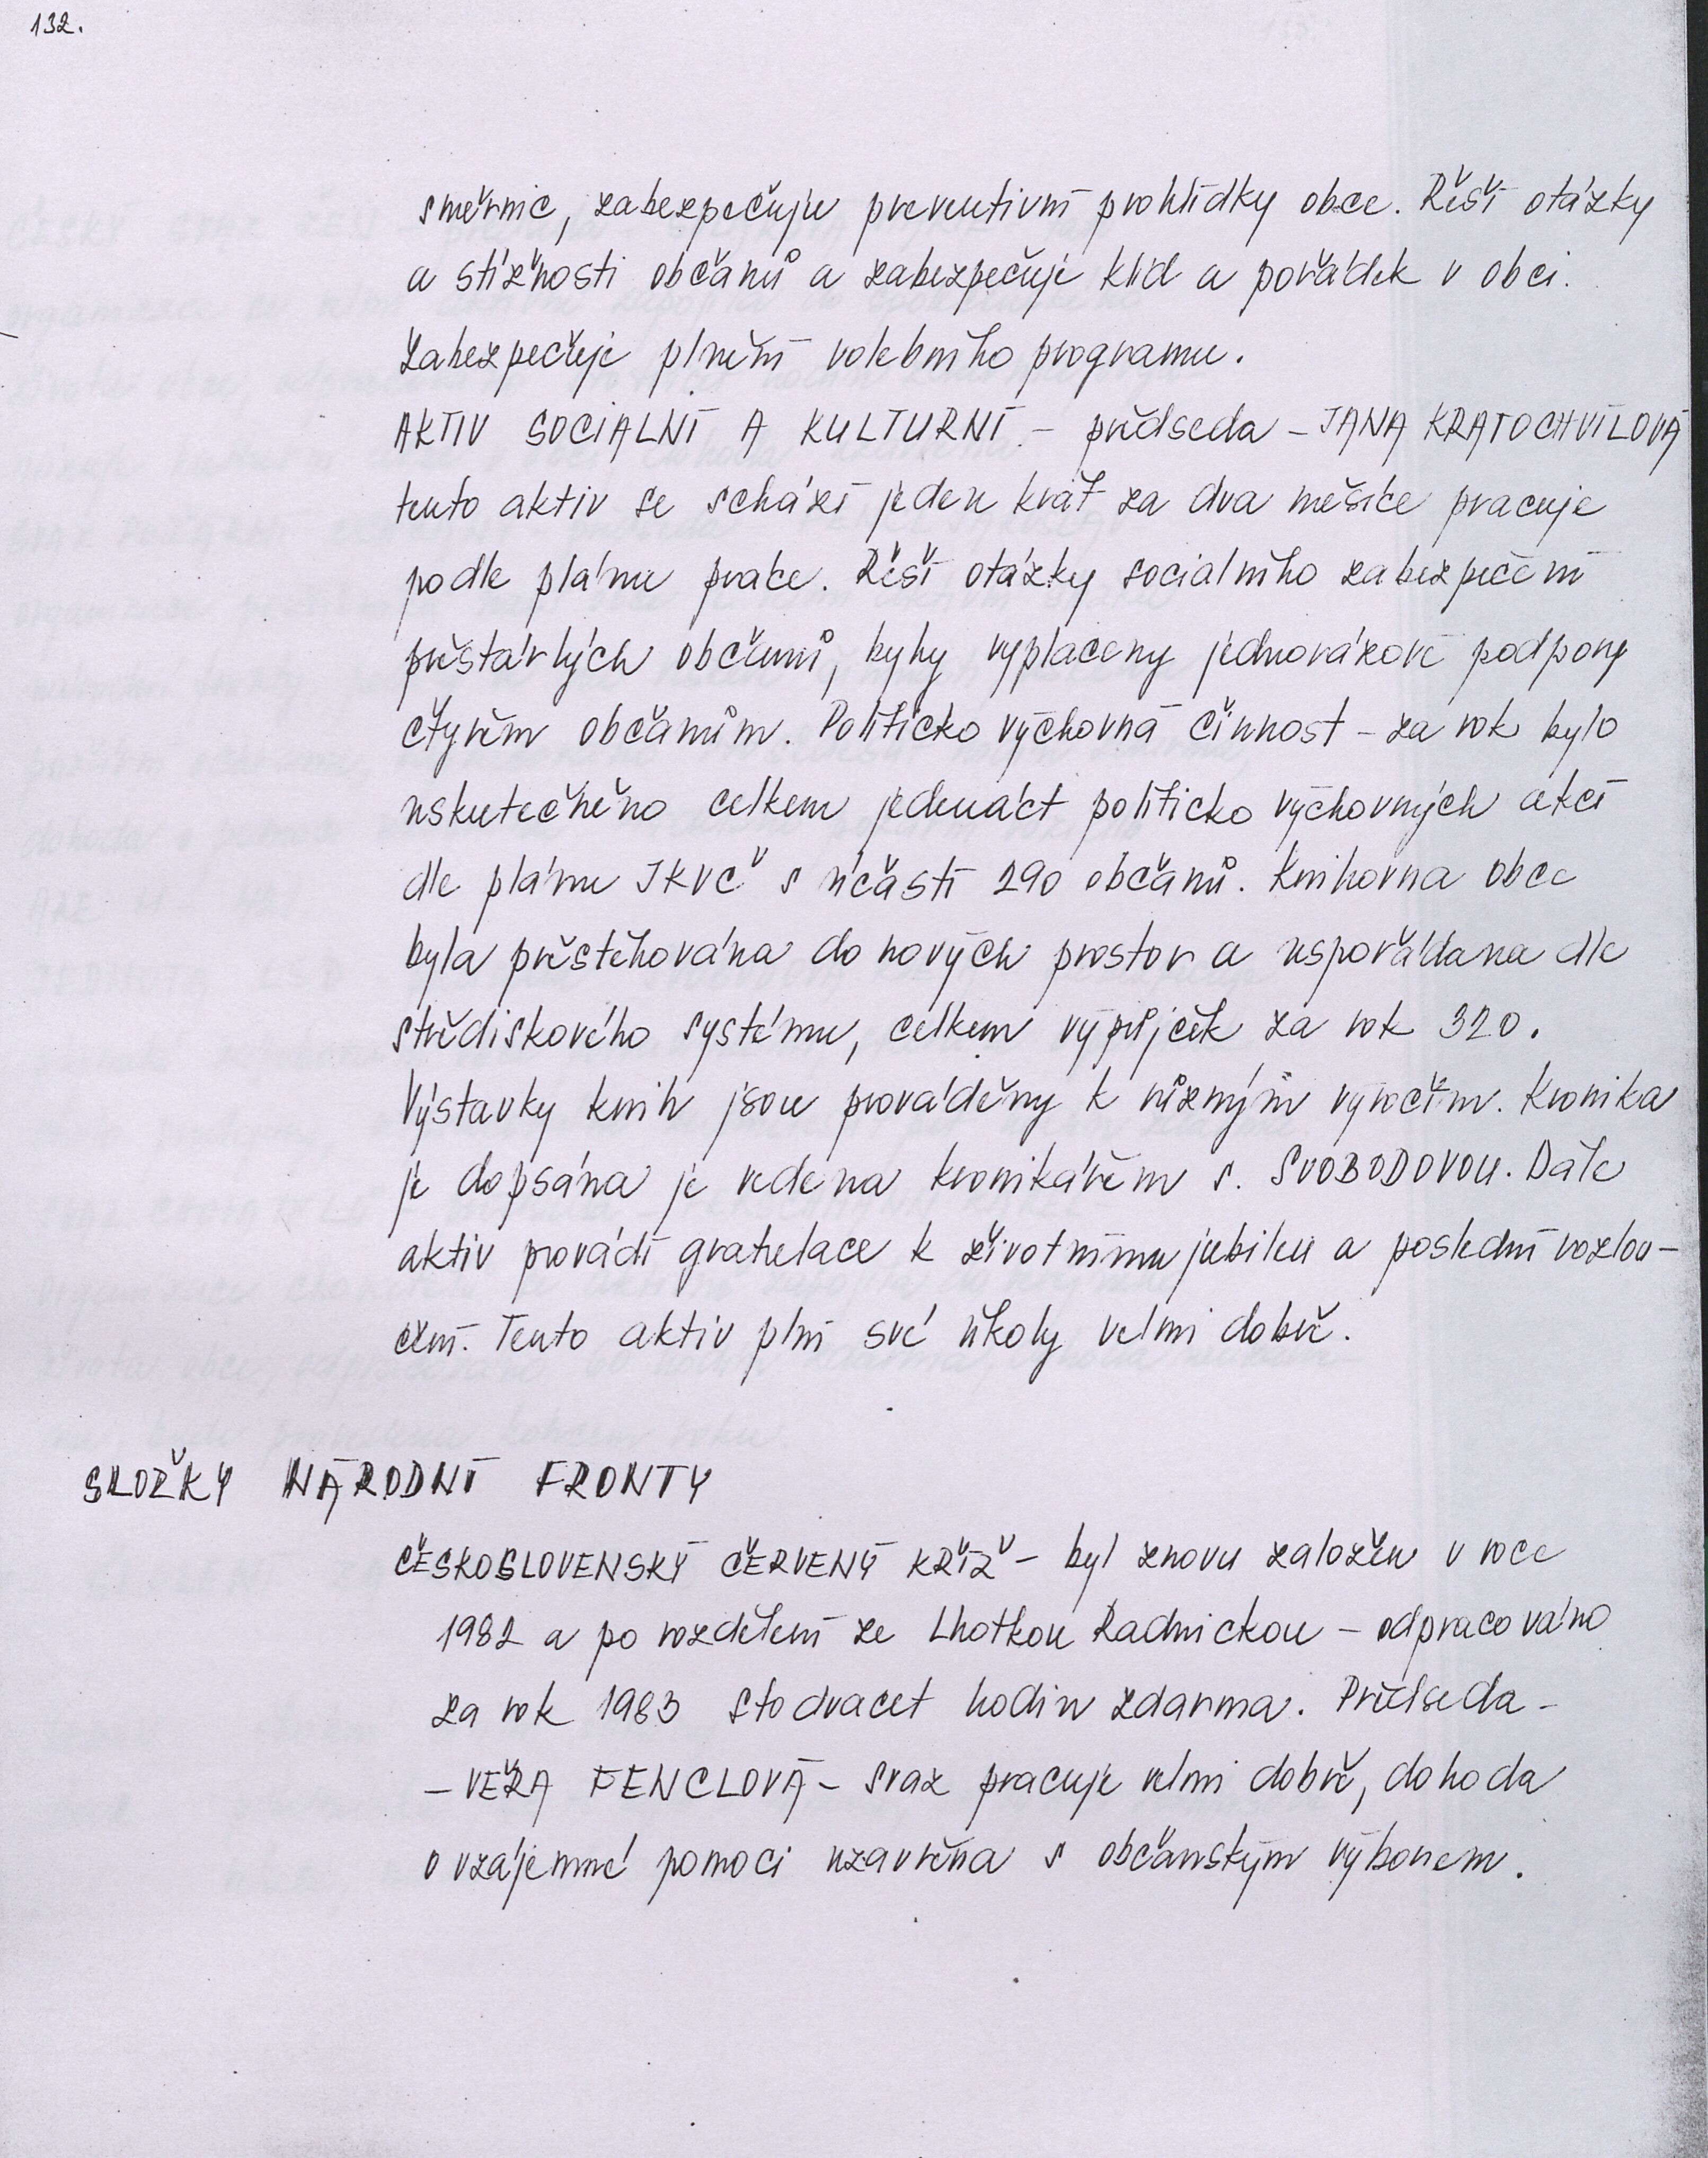 132.
směrnic, zabezpečuje preventivní prohlídky obce. Řeší otázky
a stížnosti občanů a zabezpečuje klid a pořádek v obci.
Zabezpečuje plnění volebního programu.
AKTIV SOCIALNÍ A KULTURNÍ – předseda – JANA KRATOCHVÍLOVÁ
tento aktiv se schází jeden krát za dva měsíce pracuje
podle plánu práce. Řeší otázky socialního zabezpečení
přestárlých občanů, byly vyplaceny jednorázové podpory
čtyřem občanům. Politicko výchovná činnost – za rok bylo
uskutečněno celkem jedenáct politicko výchovných akcí
dle plánu JKVČ s účastí 290 občanů. Knihovna obce
byla přestěhována do nových prostor a uspořádana dle
střediskového systému, celkem výpůjček za rok 320.
Výstavky knih jsou prováděny k různým výročím. Kronika
je dopsána je vedena kronikářem s. SVOBODOVOU. Dále
aktiv provádí gratulace k životnímu jubileu a poslední rozlou-
čení. Tento aktiv plní své úkoly velmi dobře.
SLOŽKY NÁRODNÍ FRONTY
ČESKOSLOVENSKÝ ČERVENÝ KŘÍŽ – byl znovu založen v roce
1982 a po rozdělení ze Lhotkou Radnickou – odpracováno
za rok 1983 stodvacet hodin zdarma. Předseda –
– VĚRA FENCLOVÁ – svaz pracuje velmi dobře, dohoda
o vzájemné pomoci uzavřena s občanským výborem.